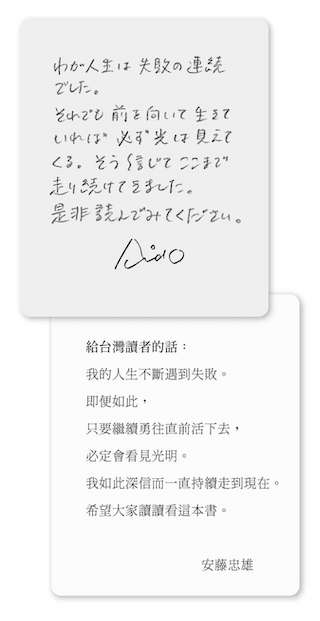 わが人生は失敗の連続
でした。
それでも前を向いて生きて
いれば必ず光は見えて
くる。そう信じてここまで
走り続けてきました。
是非読んでみてください。
給台灣讀者的話：
我的人生不斷遇到失敗。
即便如此，
只要繼續勇往直前活下去，
必定會看見光明。
我如此深信而一直持續走到現在。
希望大家讀讀看這本書。
安藤忠雄